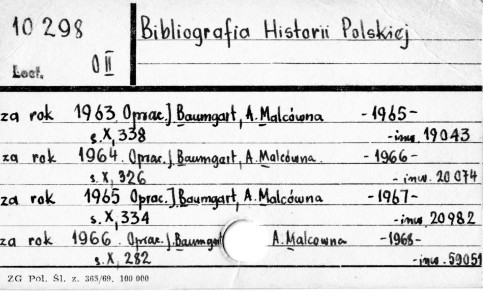 10 298
Bibliografia Historii Polskiej
Lect. O II
za rok 1963 Oprac. J. Baumgart, A. Malcówna -1965-
s. X, 338 -inw. 19043
za rok 1964. Oprac. J. Baumgart, A. Malcówna. -1966-
s. X, 326 -inw. 20 074
za rok 1965 Oprac. J. Baumgart, A. Malcówna -1967-
s. X, 334 -inw. 20982
za rok 1966. Oprac. J. Baumgart A. Malcowna -1968-
s. X, 282 -inw. 59051
ZG Pol. Śl. z. 363/69. 100 000